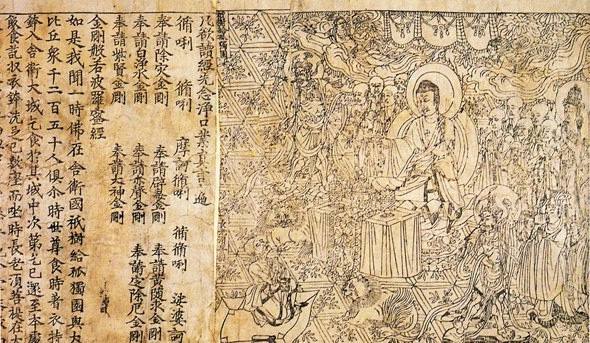 凡欲讀經先念淨口業真言一遍
脩唎 脩唎 摩訶脩唎 脩脩唎 娑婆訶
奉請除灾金剛 奉請辟毒金剛 奉請黃隨求金剛
奉請白淨水金剛 奉請赤聲金剛 奉請定除厄金剛
奉請紫賢金剛 奉請大神金剛
金剛般若波羅蜜經
如是我聞一時佛在舍衛國祇樹給孤獨園與大
比丘衆千二百五十人俱尒時世尊食時著衣持
鉢入舍衛大城乞食於其城中次第乞已還至本處
飯食訖收衣鉢洗足已敷座而坐時長老湏菩提在大